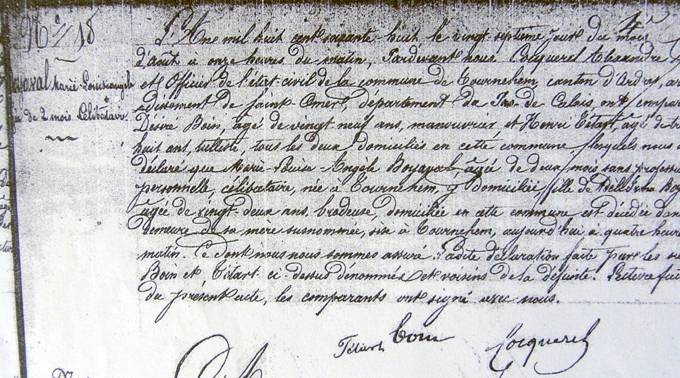 N° 18
Marie Louise Angèle
de 2 mois Célibataire
L'An mil huit cent soixante huit le vingt septième jour du mois
d'Août à onze heures du matin, Pardevant nous Cocquerel Alexandre
et Officier de l'état-civil de la commune de Tournehem, canton d'Ardres, arron
dissement de Saint Omer, département du Pas de Calais, ont comparu
Désiré Boin, agé de vingt neuf ans, manouvrier et Henri Tétart, agé de
huit ans, tulliste, tous les deux domiciliés en cette commune lesquels nous
déclaré que Marie Louise Angèle Boyaval, agée de deux mois sans profession
personnelle, célibataire, née à Tournehem, y domiciliée fille de
agée de vingt deux ans, brodeuse, domiciliée en cette commune est décédée dans
demeure de sa mère susnommée, sise à Tournehem, aujourd'hui à quatre heures
matin. Ce dont nous nous sommes assuré. Ladite déclaration faite par les
Boin et Tétart ci-dessus dénommés et voisins de la défunte. Lecture faite
du présent acte, les comparants ont signé avec nous.
Tétart Boin Cocquerel